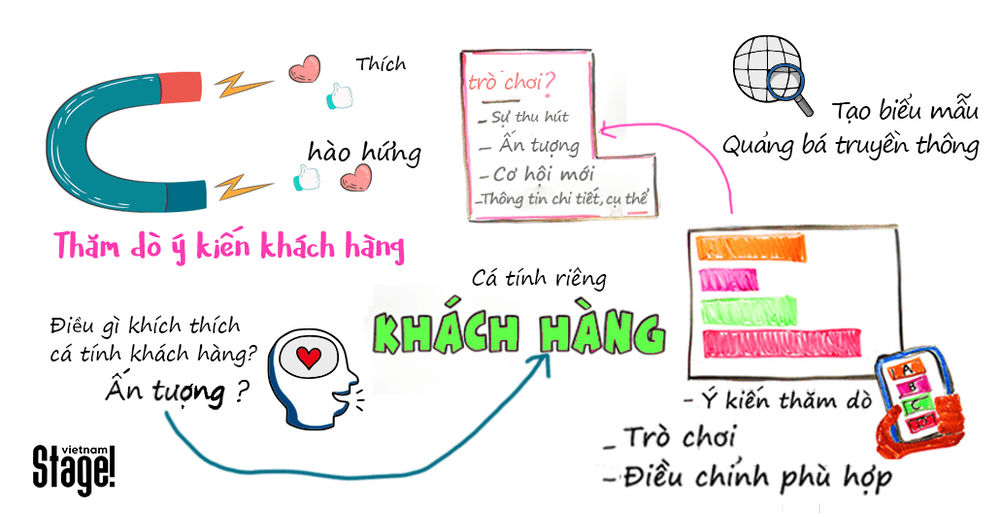 Thích
hào hứng
Thăm dò ý kiến khách hàng
trò chơi?
- Sự thu hút
- Ấn tượng
- Cơ hội mới
- Thông tin chi tiết, cụ thể
Tạo biểu mẫu
Quảng bá truyền thông
Điều gì khích thích
cá tính khách hàng?
Ấn tượng ?
Cá tính riêng
KHÁCH HÀNG
A
B
C
D
- Ý kiến thăm dò
- Trò chơi
- Điều chỉnh phù hợp
vietnam
Stage!